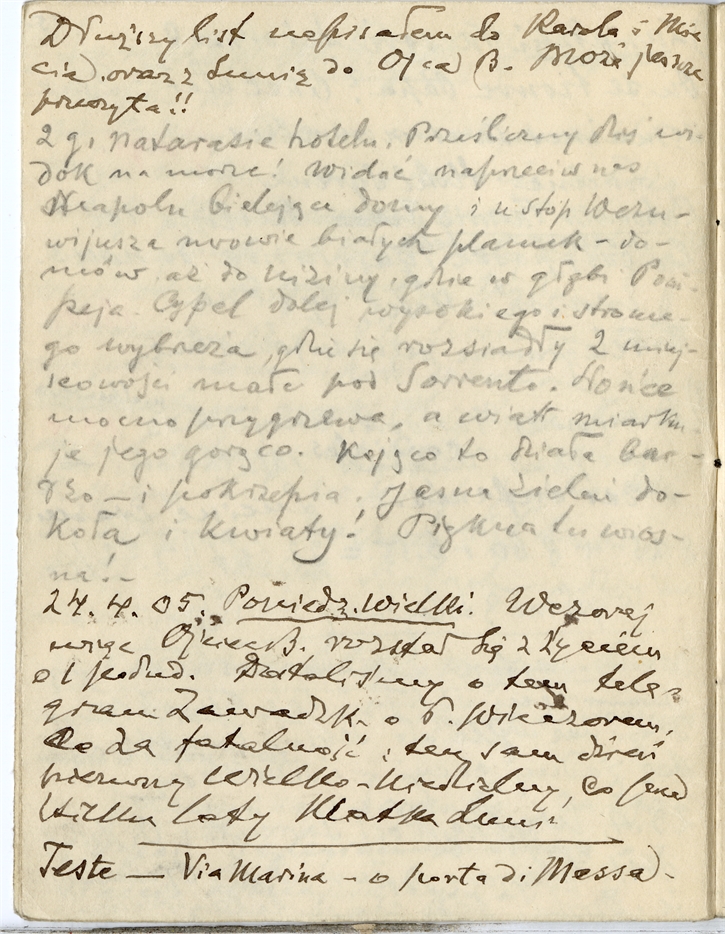 Dłuższy list napisałem do Karola i Mie
cia, oraz z Lunią do Ojca B. Może jeszcze
przeczyta!!
2 g. na tarasie hotelu. Prześliczny stąd wi-
dok na morze! Widać naprzeciw nas
Neapolu bielejące domy i u stóp Wezu-
wijusza mrowie białych plamek - do-
mów, aż do niziny, gdzie w głębi Pom-
peja. Cypel dalej wysokiego i strome-
go wybrzeża, gdzie się rozsiadły 2 miej-
scowości małe pod Sorrento. Słońce
mocno przygrzewa, a wiatr miarku-
je jego gorąco. Kojąco to działa bar-
dzo — i pokrzepia. Jasna zieleń do-
koła i kwiaty! Piękna tu wios-
na! -
24.4.05. Poniedz. Wielki. Wczoraj
więc Ojciec B. rozstał się z życiem
o 1 połud. Dostaliśmy o tem tele-
gram Zawadzk. o 6. wieczorem.
Co za fatalność, ten sam dzień
pierwszy Wielko-Niedzielny, co przed
kilku laty Matka Luni.
Teste — Via Marina - o porta di Massa -